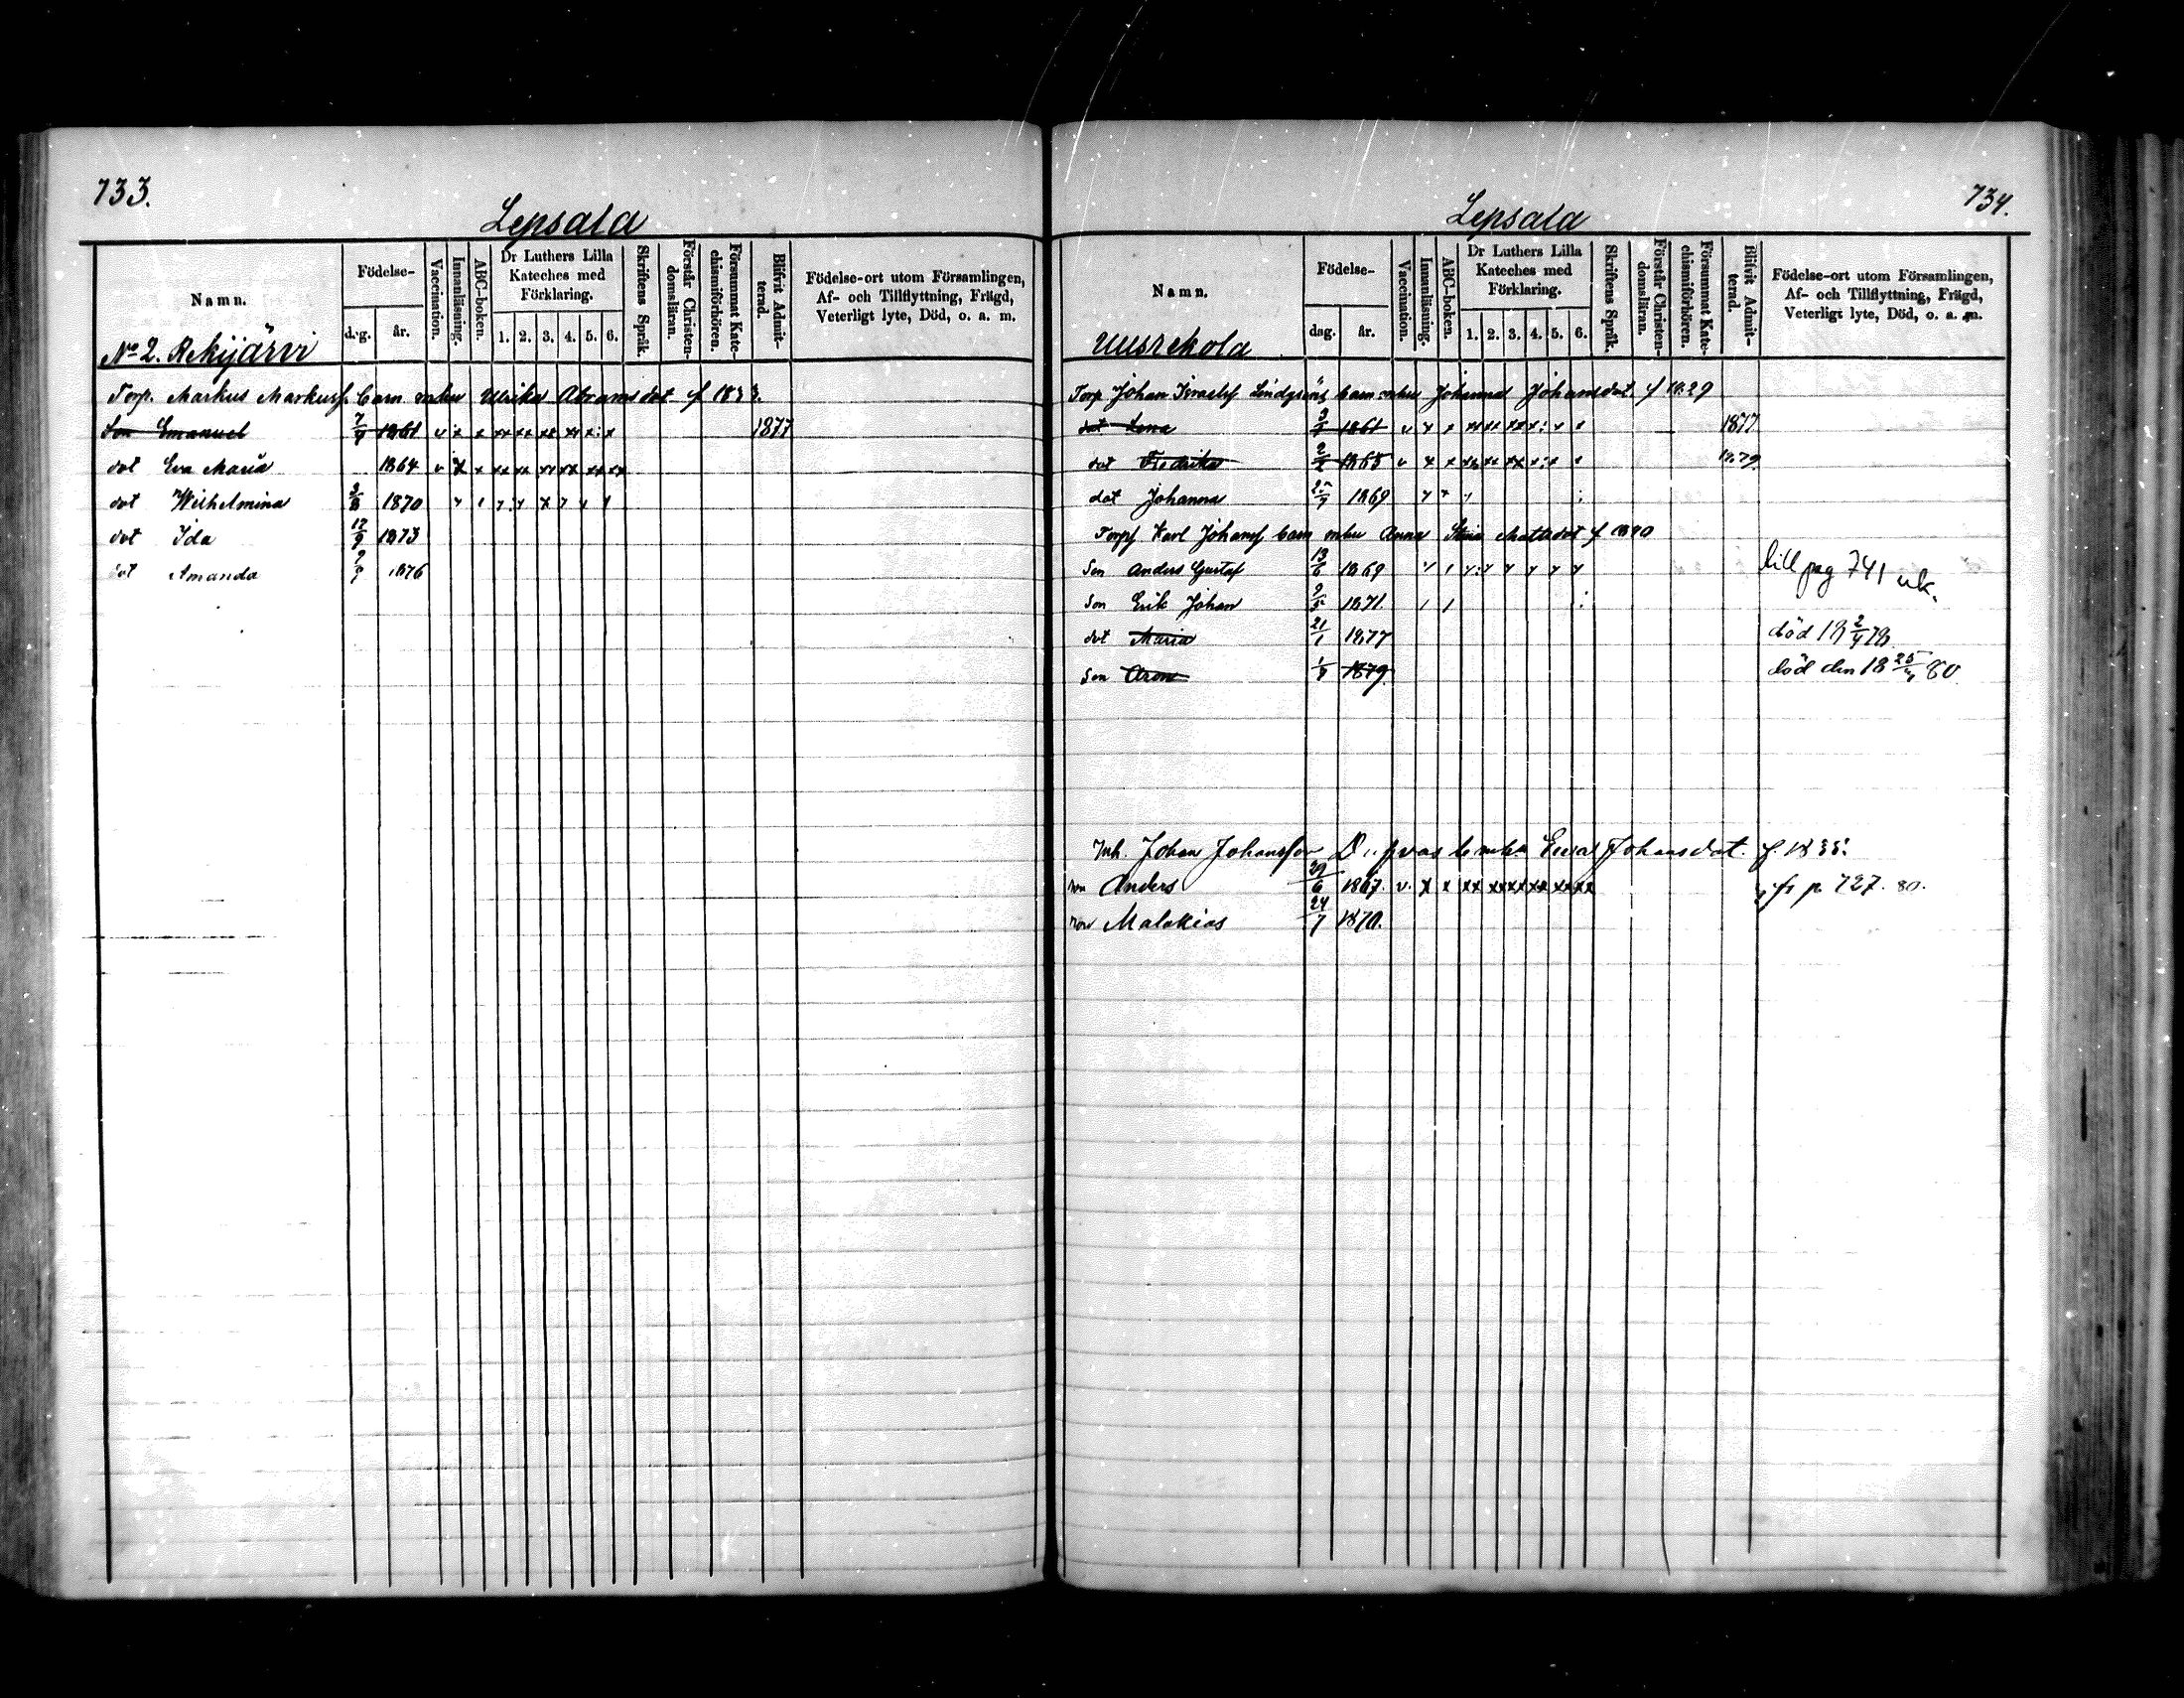 733.
Lepsala
Namn.
Födelse-
dag. år.
Vaccination.
Innanläsning.
ABC-boken.
Dr Luthers Lilla Kateches med Förklaring.
1. 2. 3. 4. 5. 6.
Skriftens Språk.
Förstår Christen-domsläran.
Försummat Kate-chismiförhören.
Blifvit Admit-terad.
Födelse-ort utom Församlingen, Af- och Tillflyttning, Frägd, Veterligt lyte, Död, o. a. m.
No 2. Rekijärvi
Torp. Markus Markusf. barn mhu Ulrika Abramsdot f 1833.
Son Emanuel 7/9 1861 v x x xx xx xx xx x: x 1877
dot Eva Maria 1864 v x x xx xx xx xx xx xx
dot Wilhelmina 1870
dot Ida 12/9 1873
dot Amanda 1876
734.
Lepsala
Namn.
Födelse-
dag. år.
Vaccination.
Innanläsning.
ABC-boken.
Dr Luthers Lilla Kateches med Förklaring.
1. 2. 3. 4. 5. 6.
Skriftens Språk.
Förstår Christen-domsläran.
Försummat Kate-chismiförhören.
Blifvit Admit-terad.
Födelse-ort utom Församlingen, Af- och Tillflyttning, Frägd, Veterligt lyte, Död, o. a. m.
Uusrekola
Torp Johan Israelsf Lindgrens barn mhu Johanna Johansdot. f 1829
dot Lena 1861 1877
dot Fredrika 2/2 1865 1879
dot Johanna 1869
Torpf Karl Johansf barn mhu Anna Stina Mattsdot f 1840
Son Anders Gustaf 13/6 1869 till pag 741 uk.
Son Erik Johan 1871
dot Maria 21/1 1877 död 18 2/4 78
Son Aron 1879 död den 18 25/4 80
Inh. Johan Johansson b mhu Eva Johansdot. f 1835.
son Anders 29/6 1867. v. x x xx xx xx xx xx xx fr p 727. 80.
son Malakias 24/7 1870.